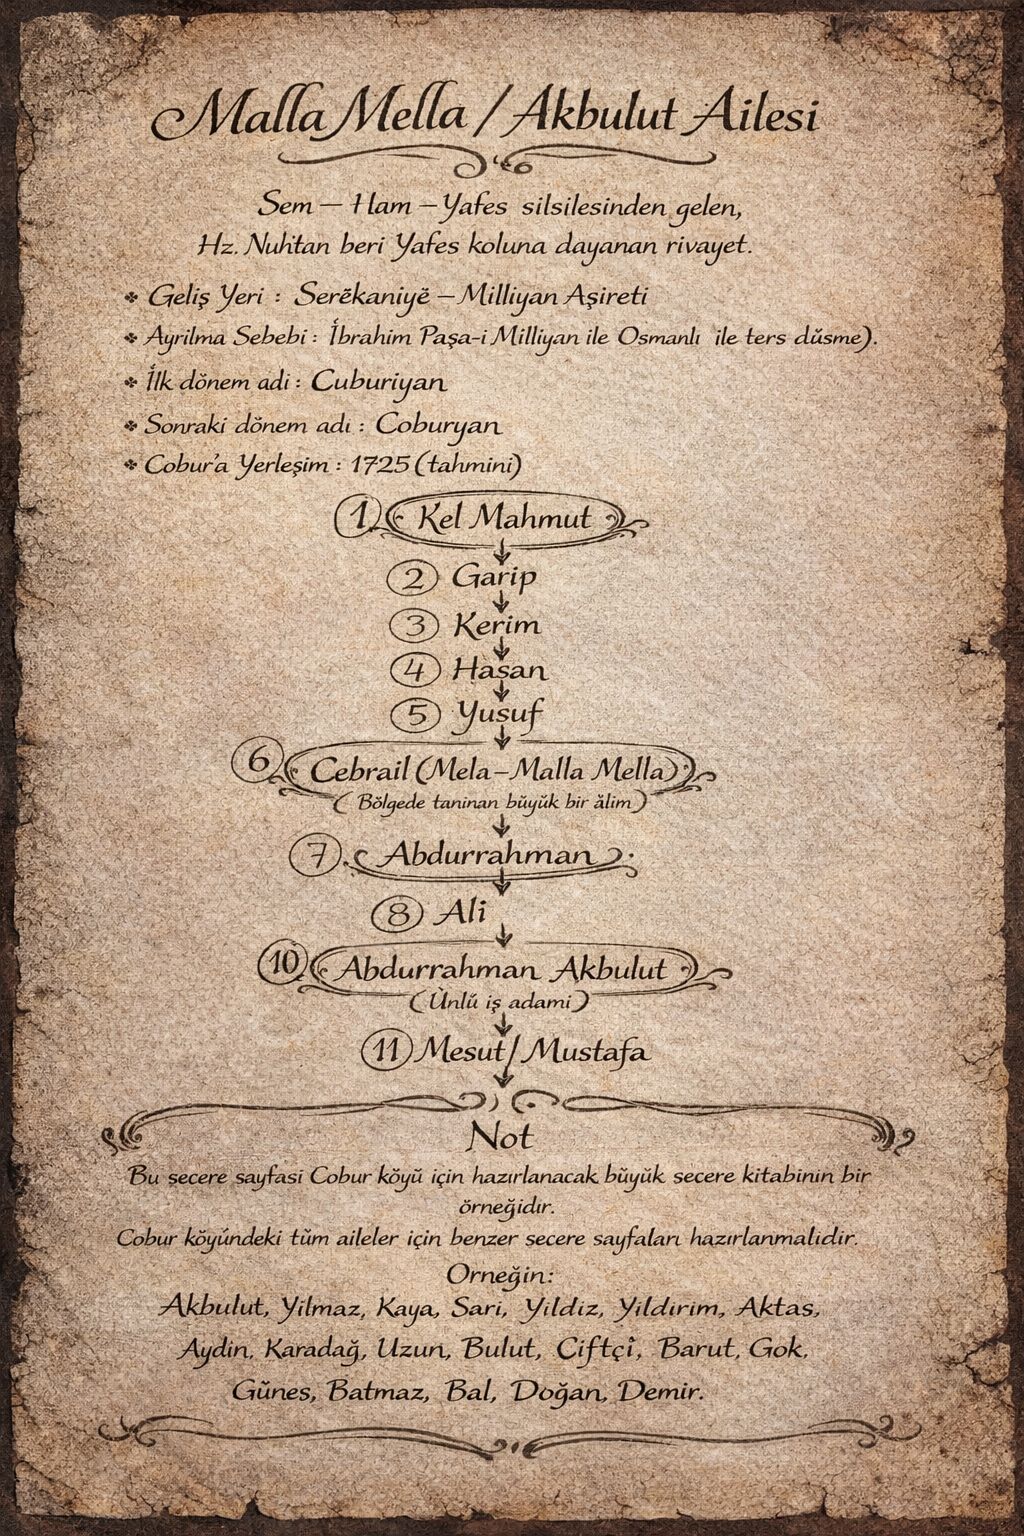 Malla Mella / Akbulut Ailesi
Sem – Ham – Yafes silsilesinden gelen,
Hz. Nuh'tan beri Yafes koluna dayanan rivayet.
Geliş Yeri : Serëkaniyë – Milliyan Aşireti
Ayrilma Sebebi : İbrahim Paşa-i Milliyan ile Osmanlı ile ters düsme).
İlk dönem adi : Cuburiyan
Sonraki dönem adı : Coburyan
Cobur'a Yerleşim : 1725 (tahmini)
1 Kel Mahmut
2 Garip
3 Kerim
4 Hasan
5 Yusuf
6 Cebrail (Mela–Malla Mella)
( Bölgede taninan büyük bir âlim )
7 Abdurrahman
8 Ali
10 Abdurrahman Akbulut
( Ünlü iş adami )
11 Mesut / Mustafa
Not
Bu secere sayfasi Cobur köyü için hazırlanacak büyük secere kitabinin bir
örneğidır.
Cobur köyündeki tüm aileler için benzer secere sayfaları hazırlanmalidir.
Orneğin:
Akbulut, Yilmaz, Kaya, Sari, Yildiz, Yildirim, Aktas,
Aydin, Karadağ, Uzun, Bulut, Ciftçi, Barut, Gok,
Günes, Batmaz, Bal, Doğan, Demir.